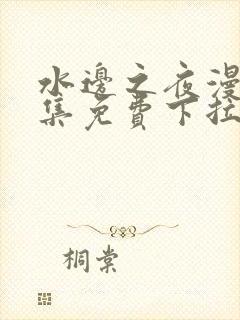 水邊之夜漫
集免費下拉
桐棠